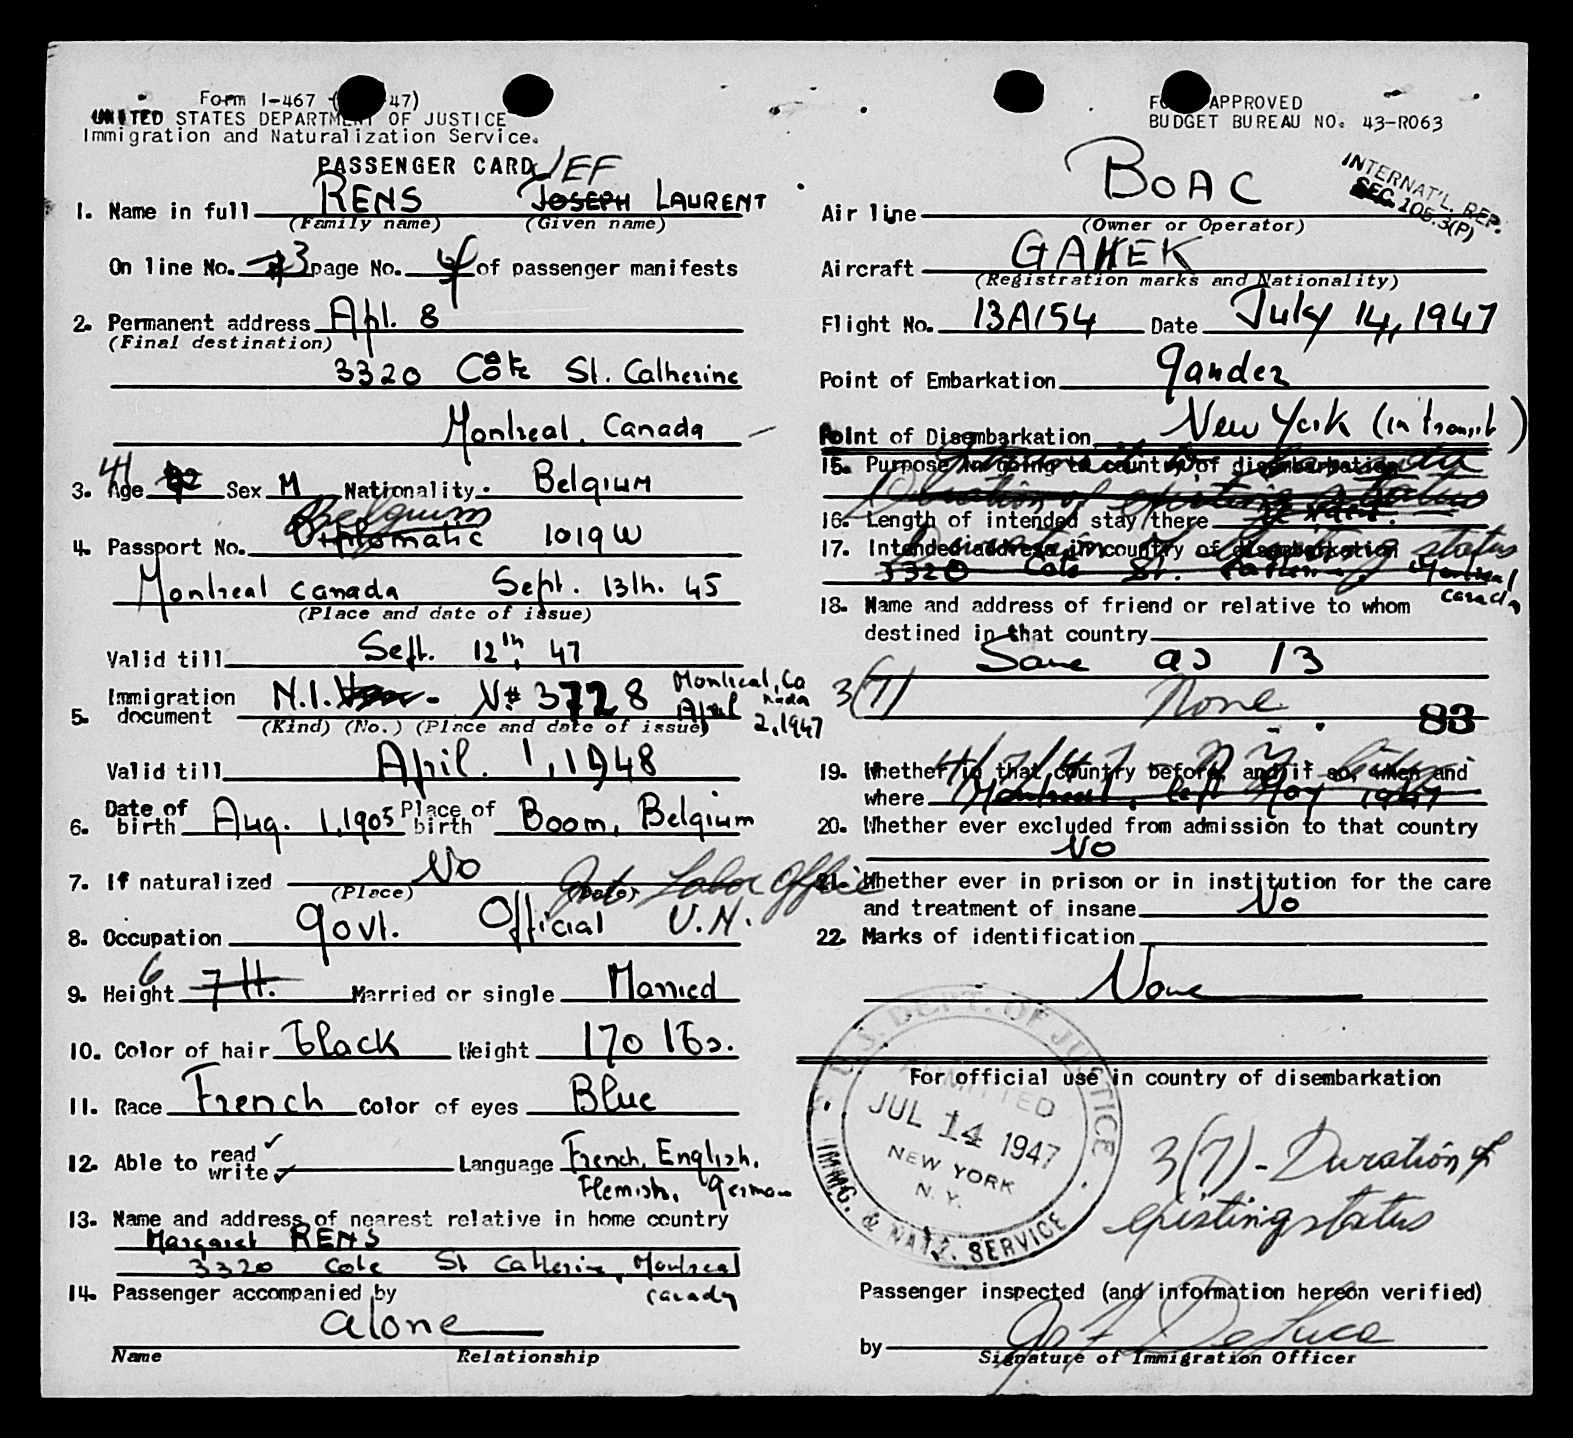 Form I-467 47)
UNITED STATES DEPARTMENT OF JUSTICE
Immigration and Naturalization Service.
PASSENGER CARD JEF
1. Name in full RENS JOSEPH LAURENT
(Family name) (Given name)
On line No. 3 page No. 4 of passenger manifests
2. Permanent address Apt. 8
(Final destination)
3320 Côte St. Catherine
Montreal, Canada
3. Age 41 42 Sex M Nationality Belgium
Belgium
4. Passport No. Diplomatic 1019 W
Montreal Canada Sept. 13th. 45
(Place and date of issue)
Valid till Sept. 12th, 47
5. Immigration document N.I. No 3728 Montreal, Canada April 2, 1947
(Kind) (No.) (Place and date of issue)
Valid till April. 1, 1948
6. Date of birth Aug. 1, 1905 Place of birth Boom, Belgium
7. If naturalized No
(Place) (Date)
Labor Office
8. Occupation Govt. Official U.N.
9. Height 6 7 ft. Married or single Married
10. Color of hair black Weight 170 lbs.
11. Race French Color of eyes Blue
12. Able to read ✓ write ✓ Language French, English,
Flemish, German
13. Name and address of nearest relative in home country
Margaret RENS
3320 Cote St Catherine, Montreal
Canada
14. Passenger accompanied by
alone
Name Relationship
FO APPROVED
BUDGET BUREAU NO. 43-R063
INTERNAT'L. REP.
SEC. 105.3(P)
Air line BOAC
(Owner or Operator)
Aircraft GAHEK
(Registration marks and Nationality)
Flight No. 13A154 Date July 14, 1947
Point of Embarkation Gander
Point of Disembarkation New York (in transit)
15. Purpose in going to country of disembarkation
Duration of existing status
16. Length of intended stay there
17. Intended address in country of disembarkation
Duration of existing status
3320 Cote St. Montreal
Canada
18. Name and address of friend or relative to whom
destined in that country
Same as 13
3(7) None
83
19. Whether in that country before, and if so, when and
where Montreal, left May 1947
20. Whether ever excluded from admission to that country
No
21. Whether ever in prison or in institution for the care
and treatment of insane No
22. Marks of identification
None
For official use in country of disembarkation
U.S. DEPT. OF JUSTICE
ADMITTED
JUL 14 1947
NEW YORK
N.Y.
IMMG. & NATZ. SERVICE
3(7) - Duration of
existing status
Passenger inspected (and information hereon verified)
by Jos F DeLuca
Signature of Immigration Officer